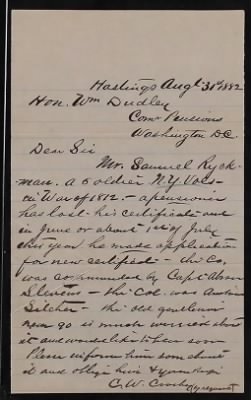 Hastings Augt 31st 1882
Hon. Wm Dudley
Com Pensions
Washington D.C.
Dear Sir
Mr. Samuel Ryck-
man. a soldier N.Y. Vols
in War of 1812. - a pensioner
has lost his certificate and
in June or about 1st of July
this year he made application
for new certificate - the Co.
was commanded by Capt
Stevens - the Col. was Austin
- the old gentleman
near 90 is much worried about
it and would like to hear soon
Please inform him some about
it and oblige him &
C. W.